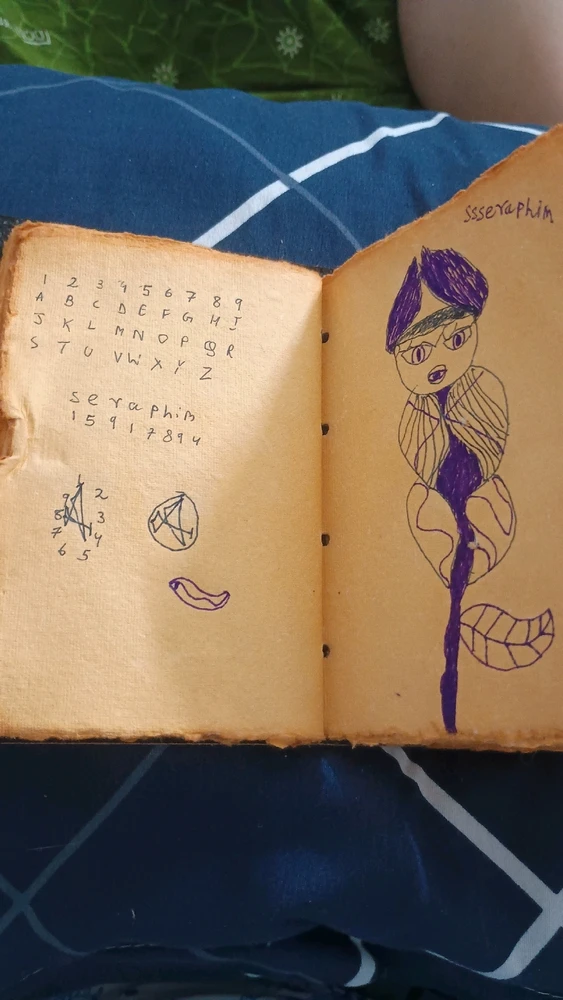 1 2 3 4 5 6 7 8 9
A B C D E F G H I
J K L M N O P Q R
S T U V W X Y Z
seraphim
1 5 9 1 7 8 9 4
1
9 2
8 3
7 4
6 5
ssseraphim